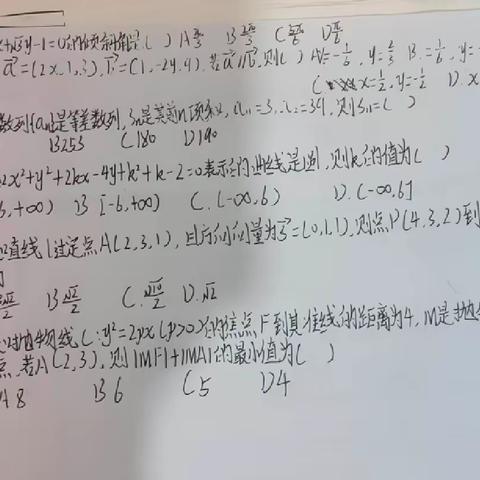 x+√3y-1=0的倾斜角是( ) A π/3 B 2π/3 C 5π/6 D π/6
a=(2x,1,3), b=(1,-2y,9), 若a∥b, 则( ) A x=1/6, y= B x=-1/6, y=
C x=1/2, y=-1/2 D. x
数列{an}是等差数列, Sn是其前n项和, 则S11=( )
B253 C180 D190
x²+y²+2kx-4y+k²+k-2=0表示的曲线是圆, 则k的值为( )
6,+∞) B [-6,+∞) C.(-∞,6) D.(-∞,6]
直线l过定点A(2,3,1), 且方向向量为s=(0,1,1), 则点P(4,3,2)到
B C. D.√2
抛物线C:y²=2px(p>0)的焦点F到其准线的距离为4, M是抛物
点, 若A(2,3), 则|MF|+|MA|的最小值为( )
A 8 B 6 C5 D4